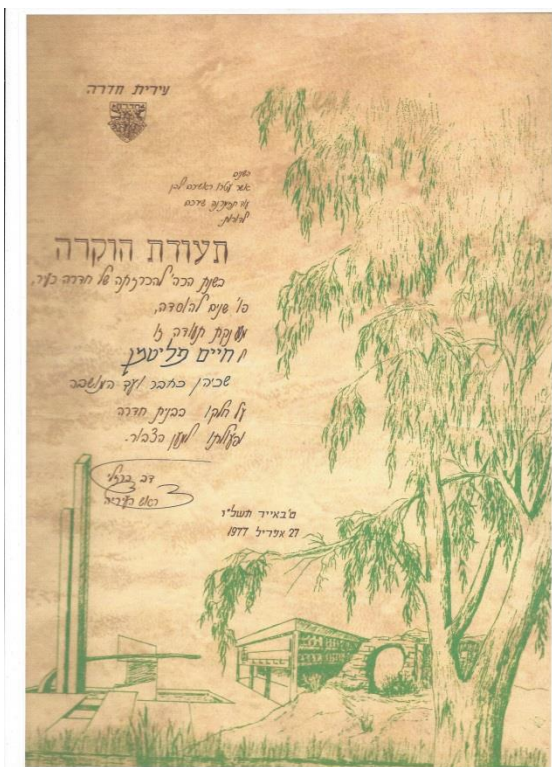 עירית חדרה
תעודת הוקרה
בשנת הכה' להכרזתה של חדרה כעיר,
פו' שנים להוסדה,
מוענקת תעודה זו
חיים פליטמן
שכיהן כחבר ועד המושבה
על חלקו בבנית חדרה
ופעילותו למען הצבור.
דב ברזילי
ראש העיריה
ט' באייר תשל"ז
27 אפריל 1977